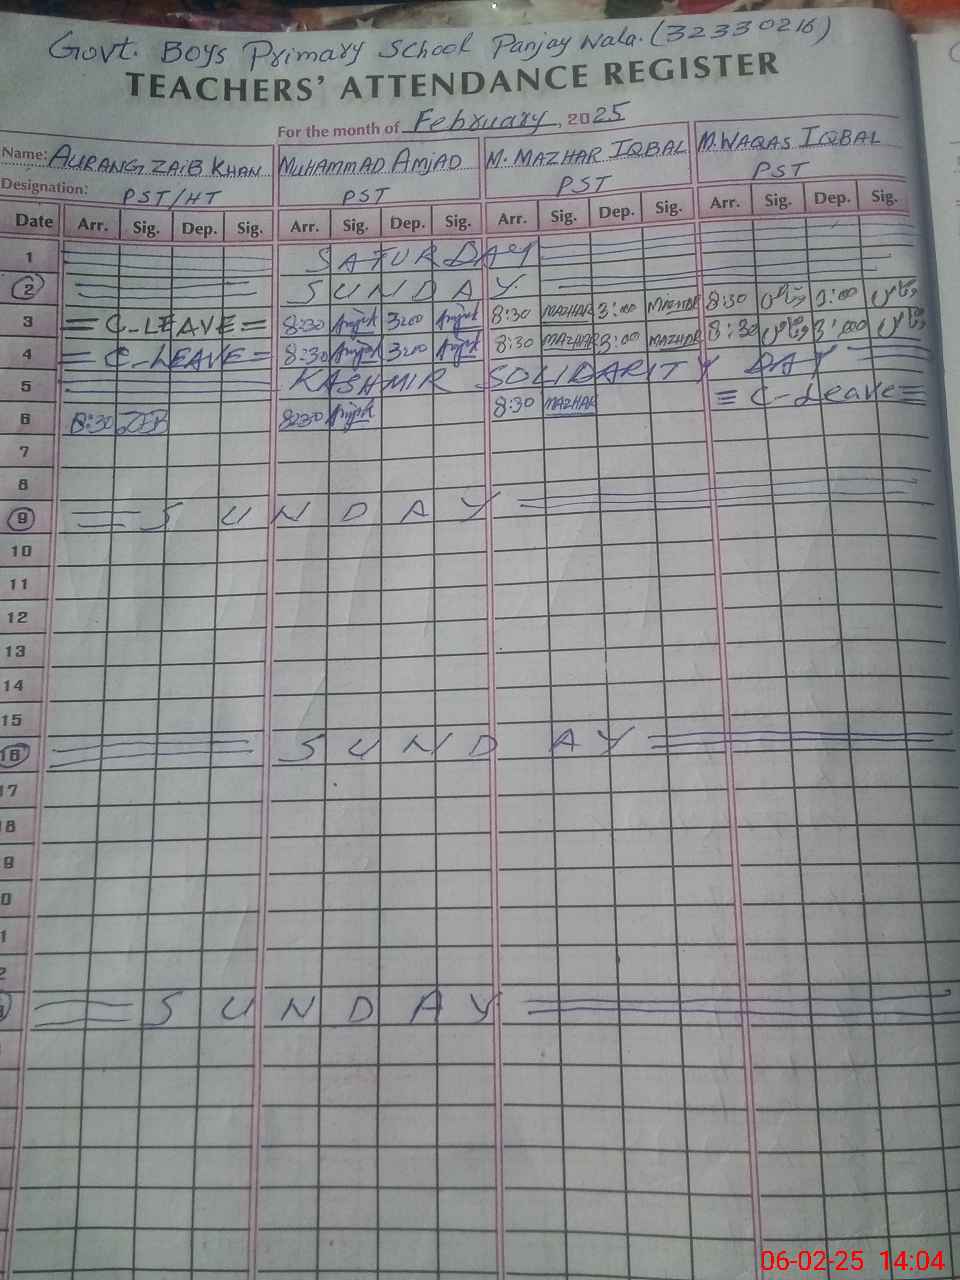 Govt. Boys Primary School Panjay Wala. (32330216)
TEACHERS' ATTENDANCE REGISTER
For the month of February, 2025
Name: AURANGZAIB KHAN MUHAMMAD AMJAD M. MAZHAR IQBAL M. WAQAS IQBAL
Designation: PST/HT PST PST PST
Date Arr. Sig. Dep. Sig. Arr. Sig. Dep. Sig. Arr. Sig. Dep. Sig. Arr. Sig. Dep. Sig.
1 SATURDAY
2 SUNDAY
3 C-LEAVE 8:30 Amjad 3:00 Amjad 8:30 MAZHAR 3:00 MAZHAR 8:30 وقاص 3:00 وقاص
4 C-LEAVE 8:30 Amjad 3:00 Amjad 8:30 MAZHAR 3:00 MAZHAR 8:30 وقاص 3:00 وقاص
5 KASHMIR SOLIDARITY DAY
6 8:30 8:30 Amjad 8:30 MAZHAR C-Leave
7
8
9 SUNDAY
10
11
12
13
14
15
16 SUNDAY
17
8
9
0
1
2
SUNDAY
06-02-25 14:04